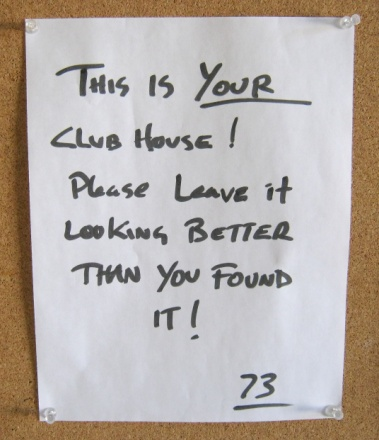 THIS IS YOUR
CLUB HOUSE!
Please Leave it
LOOKING BETTER
THAN YOU FOUND
IT!
73